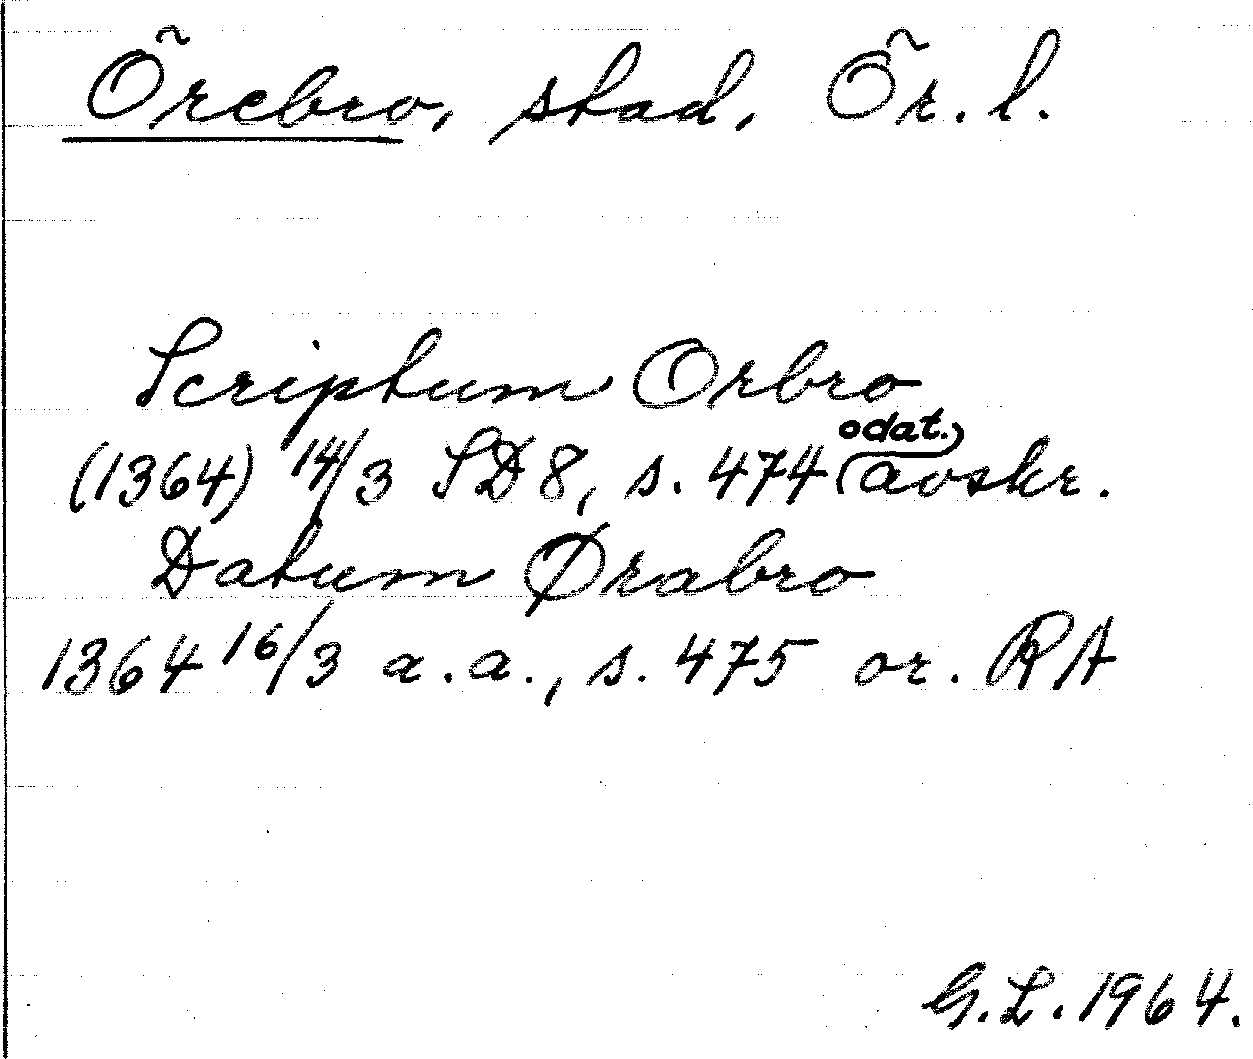 Örebro, stad, Ör. l.
Scriptum Orbro
(1364) 14/3 SD 8, s. 474 (odat.) avskr.
Datum Ørabro
1364 16/3 a.a., s. 475 or. RA
G.L. 1964.